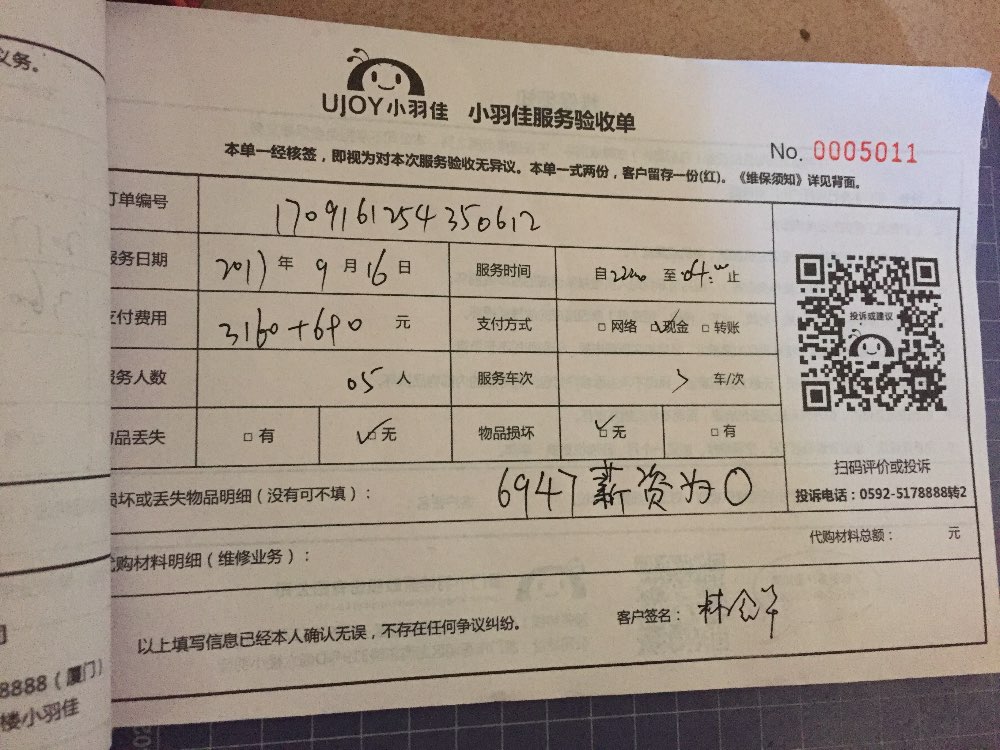 义务。
UJOY小羽佳 小羽佳服务验收单
No. 0005011
本单一经核签，即视为对本次服务验收无异议。本单一式两份，客户留存一份(红)。《维保须知》详见背面。
订单编号 1709161254350612
服务日期 2017年9月16日 服务时间 自 至 止
支付费用 3160+690 元 支付方式 □网络 ☑现金 □转账
服务人数 05人 服务车次 车/次
物品丢失 □有 ☑无 物品损坏 ☑无 □有
投诉或建议
扫码评价或投诉
投诉电话：0592-5178888转2
损坏或丢失物品明细（没有可不填）： 6947薪资为0
代购材料明细（维修业务）： 代购材料总额： 元
以上填写信息已经本人确认无误，不存在任何争议纠纷。 客户签名：
8888（厦门）
楼小羽佳